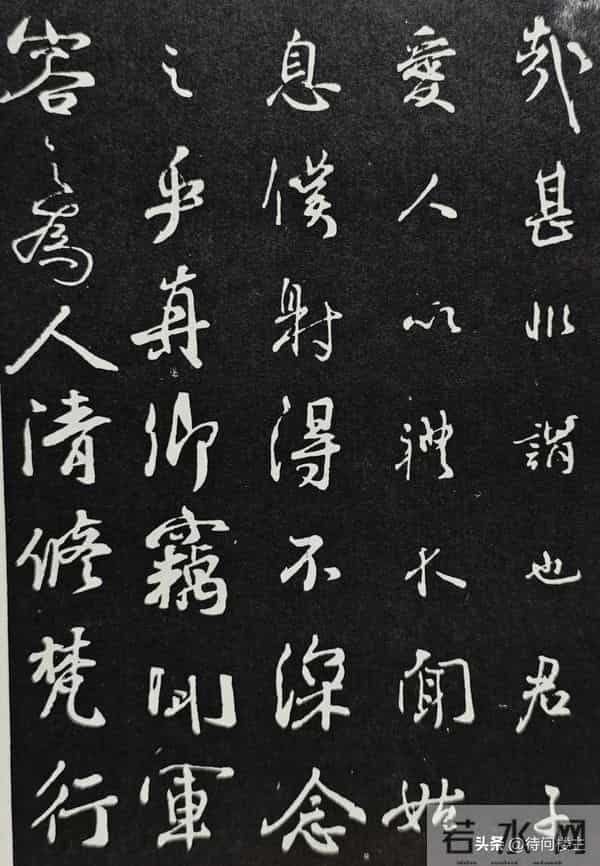 哉甚非謂也君子
愛人以禮不聞姑
息僕射得不深念
之乎真卿竊聞軍
容之為人清修梵行
若水网
头条 @待问楼主